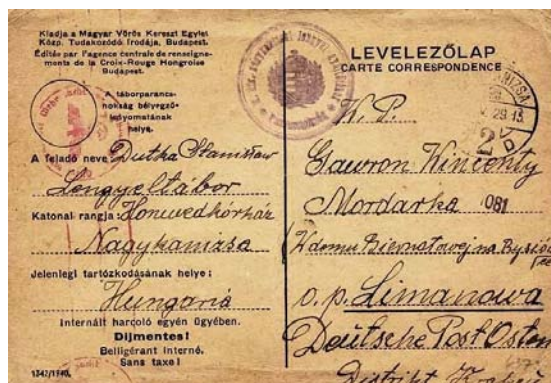 Kiadja a Magyar Vörös Kereszt Egylet
Közp. Tudakozódó Irodája, Budapest.
Éditée par l'agence centrale de renseigne-
ments de la Croix-Rouge Hongroise
Budapest.
A táborparancs-
nokság bélyegző-
lenyomatának
helye.
A feladó neve: Dutka Stanisław
Lengyeltábor
Katonai rangja: Honvedkórház
Nagykanizsa
Jelenlegi tartózkodásának helye:
Hungaria
Internált harcoló egyén ügyében.
Díjmentes!
Belligérant interné.
Sans taxe!
1342/1940.
LEVELEZŐLAP
CARTE CORRESPONDENCE
W. P.
Gawron Wincenty
Mordarka 081
o. p. Limanowa
Deutsche Post Osten
Distrikt